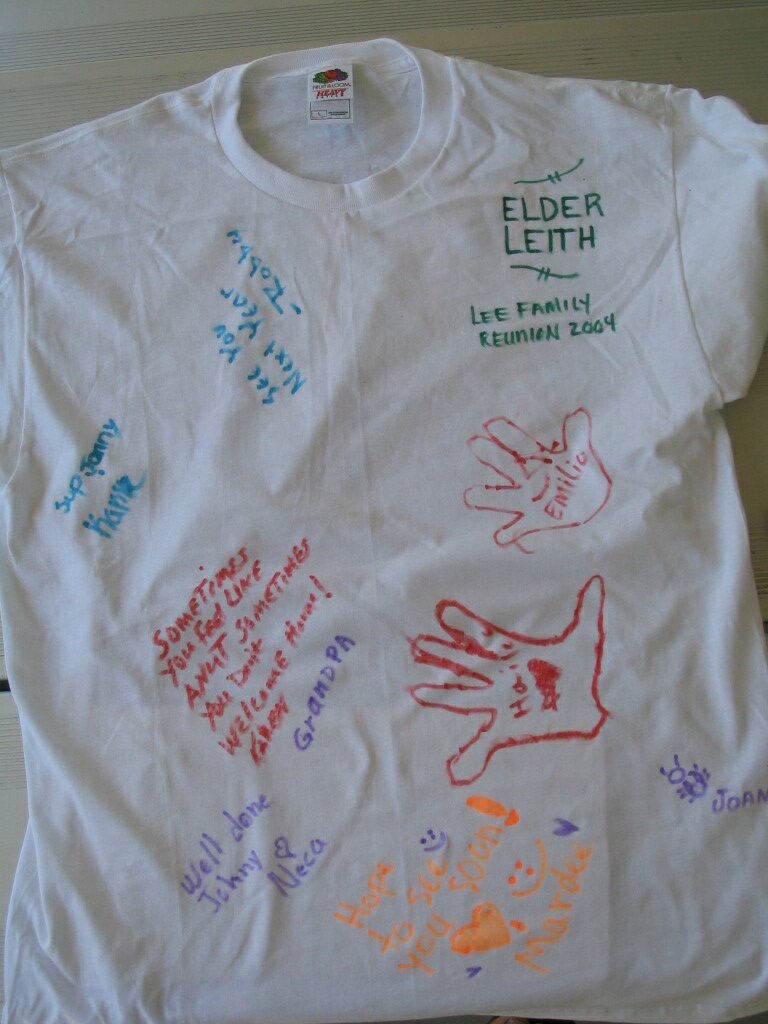 FRUIT OF THE LOOM
HEAVY
L
ELDER
LEITH
LEE FAMILY
REUNION 2004
See you
Next Year
- Robyn
Sup Jonny
Hank
EMILIO
SOMETIMES
YOU Feel LIKE
A NUT SOMETIMES
You Don't
WELCOME Home!
KAREN
GRANDPA
Hi
JOAN
Well done
Johny
Neca
Hope
to see
you soon!
Mardee